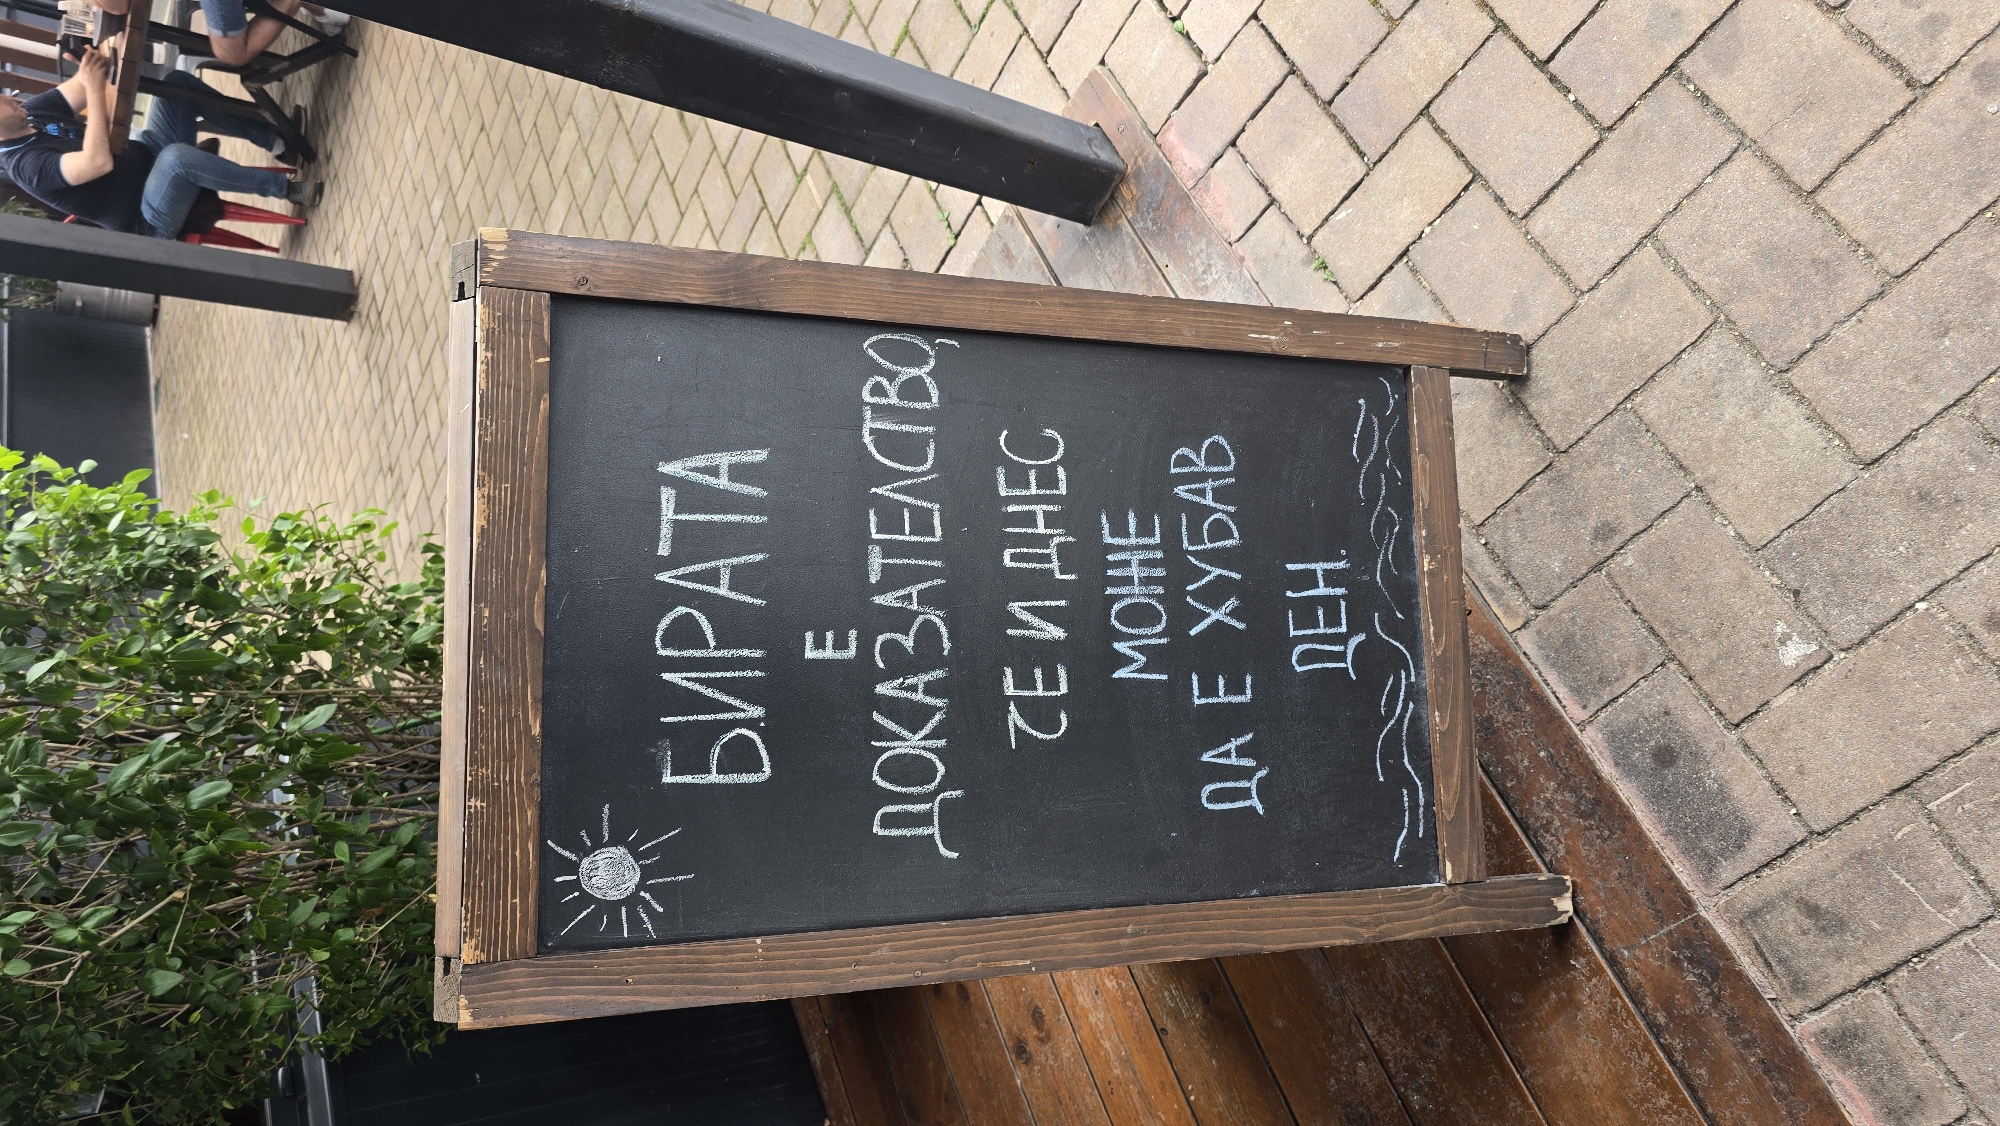 БИРАТА
Е
ДОКАЗАТЕЛСТВО,
ЧЕ И ДНЕС
МОЖЕ
ДА Е ХУБАВ
ДЕН.